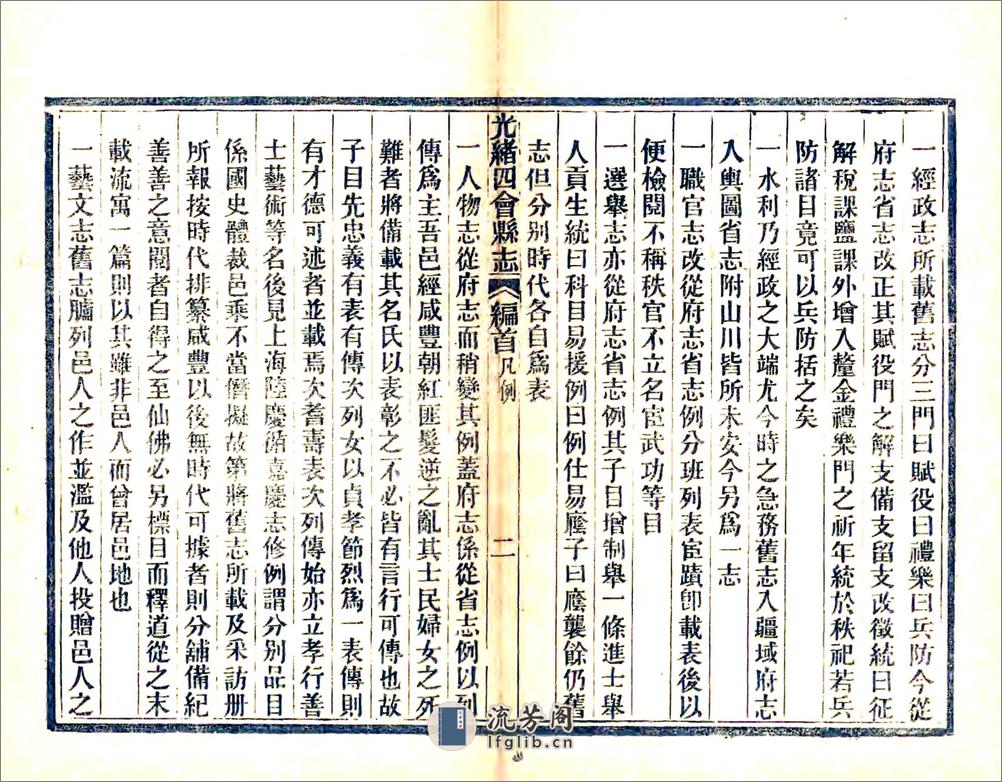 一經政志所載舊志分三門曰賦役曰禮樂曰兵防今從
府志省志改正其賦役門之解支備支留支改徵統曰征
解稅課鹽課外增入釐金禮樂門之祈年統於秩祀若兵
防諸目竟可以兵防括之矣
一水利乃經政之大端尤今時之急務舊志入疆域府志
入輿圖省志附山川皆所未安今另為一志
一職官志改從府志省志例分班列表宦蹟卽載表後以
便檢閱不稱秩官不立名宦武功等目
一選舉志亦從府志省志例其子目增制舉一條進士舉
人貢生統曰科目易援例曰例仕易廕子曰廕襲餘仍舊
志但分別時代各自爲表
光緒四會縣志 編首 凡例 二
一人物志從府志而稍變其例蓋府志係從省志例以列
傳爲主吾邑經咸豐朝紅匪髮逆之亂其士民婦女之死
難者將備載其名氏以表彰之不必皆有言行可傳也故
子目先忠義有表有傳次列女以貞孝節烈爲一表傳則
有才德可述者並載焉次耆壽表次列傳始亦立孝行善
士藝術等名後見上海陸慶循嘉慶志修例謂分別品目
係國史體裁邑乘不當僭擬故第將舊志所載及采訪册
所報按時代排纂咸豐以後無時代可據者則分舖備紀
善善之意閱者自得之至仙佛必另標目而釋道從之末
載流寓一篇則以其雖非邑人而曾居邑地也
一藝文志舊志臚列邑人之作並濫及他人投贈邑人之
流芳阁
lfglib.cn